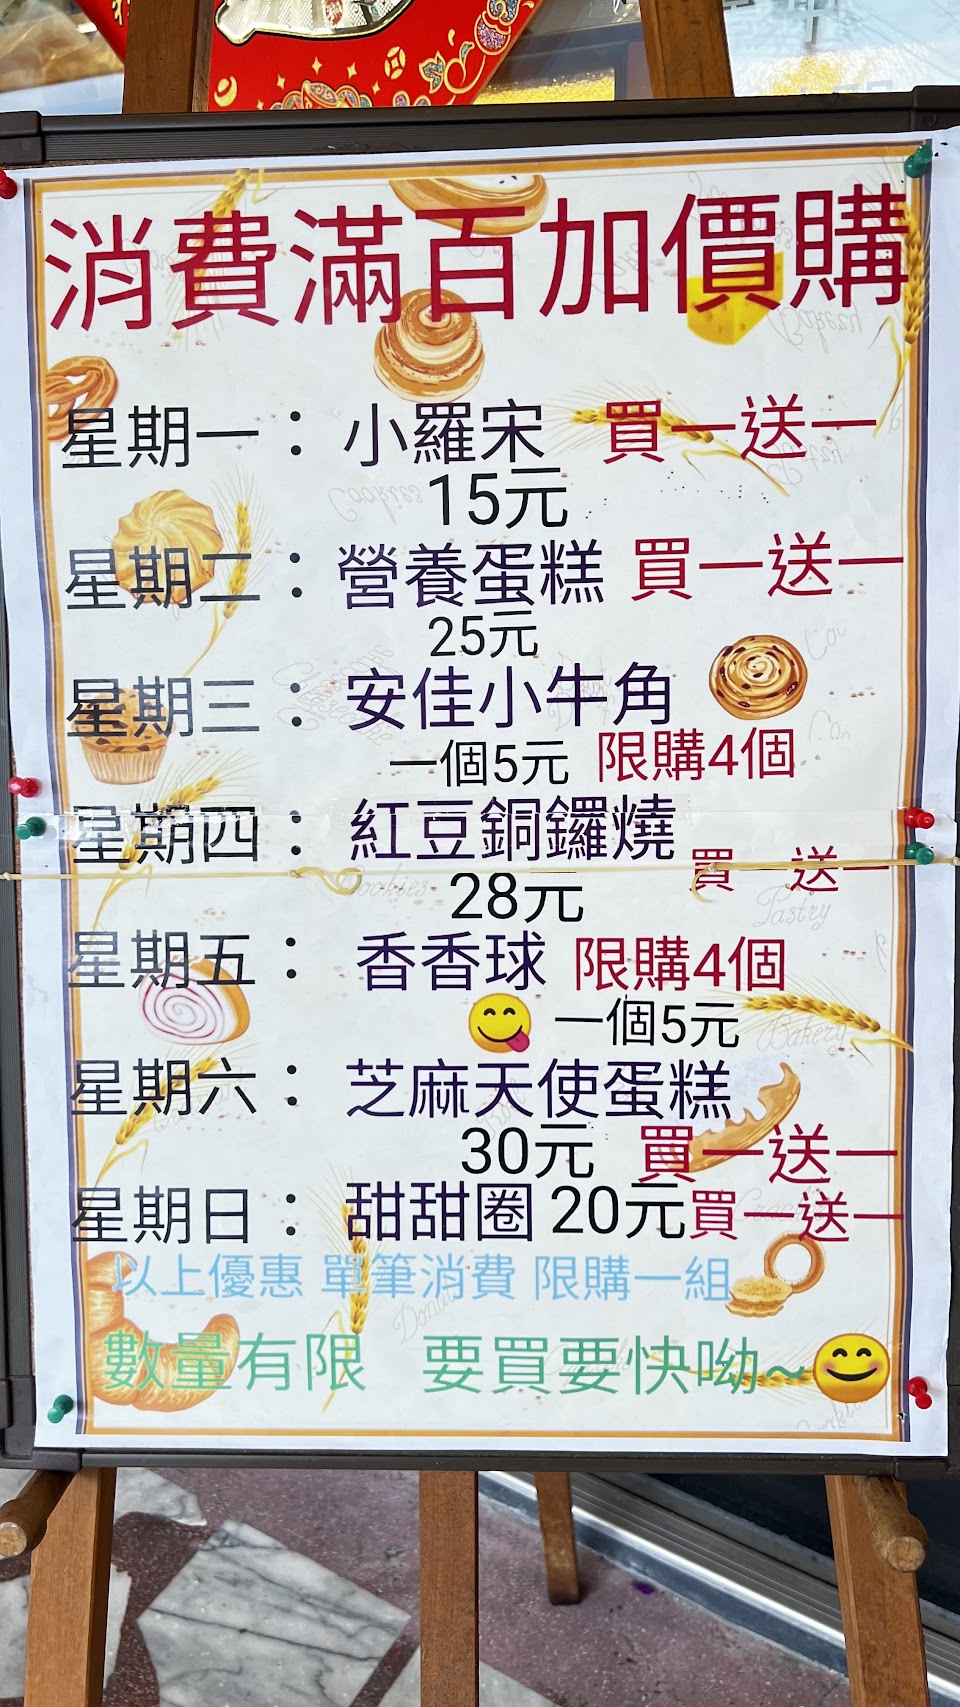 消費滿百加價購
星期一：小羅宋 買一送一
15元
星期二：營養蛋糕 買一送一
25元
星期三：安佳小牛角
一個5元 限購4個
星期四：紅豆銅鑼燒
28元 買一送一
星期五：香香球 限購4個
😋 一個5元
星期六：芝麻天使蛋糕
30元 買一送一
星期日：甜甜圈 20元買一送一
以上優惠 單筆消費 限購一組
數量有限 要買要快呦~😊